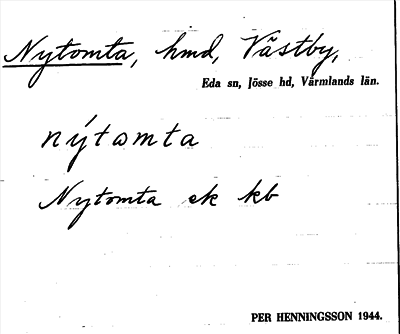 Nytomta, hmd, Västby,
Eda sn, Jösse hd, Värmlands län.
nýtωmta
Nytomta ek kb
PER HENNINGSSON 1944.